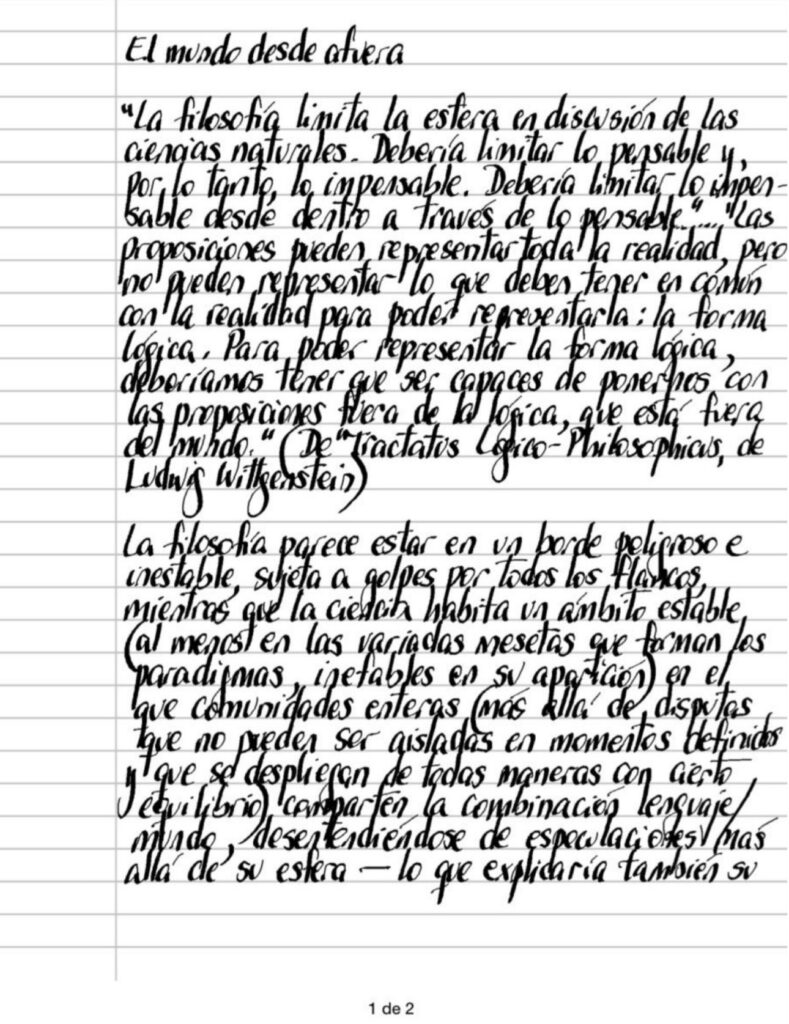 El mundo desde afuera
"La filosofía limita la esfera en discusión de las
ciencias naturales. Debería limitar lo pensable y,
por lo tanto, lo impensable. Debería limitar lo impen-
sable desde dentro a través de lo pensable."... "Las
proposiciones pueden representar toda la realidad, pero
no pueden representar lo que deben tener en común
con la realidad para poder representarla: la forma
lógica. Para poder representar la forma lógica,
deberíamos tener que ser capaces de ponernos con
las proposiciones fuera de la lógica, que está fuera
del mundo." (De "Tractatus Lógico-Philosophicus, de
Ludwig Wittgenstein)
La filosofía parece estar en un borde peligroso e
inestable, sujeta a golpes por todos los flancos,
mientras que la ciencia habita un ámbito estable
(al menos en las variadas mesetas que forman los
paradigmas, inefables en su aparición) en el
que comunidades enteras (más allá de disputas
que no pueden ser aisladas en momentos definidos
y que se despliegan de todas maneras con cierto
equilibrio) comparten la combinación lenguaje/
mundo, desentendiéndose de especulaciones más
allá de su esfera — lo que explicaría también su
1 de 2